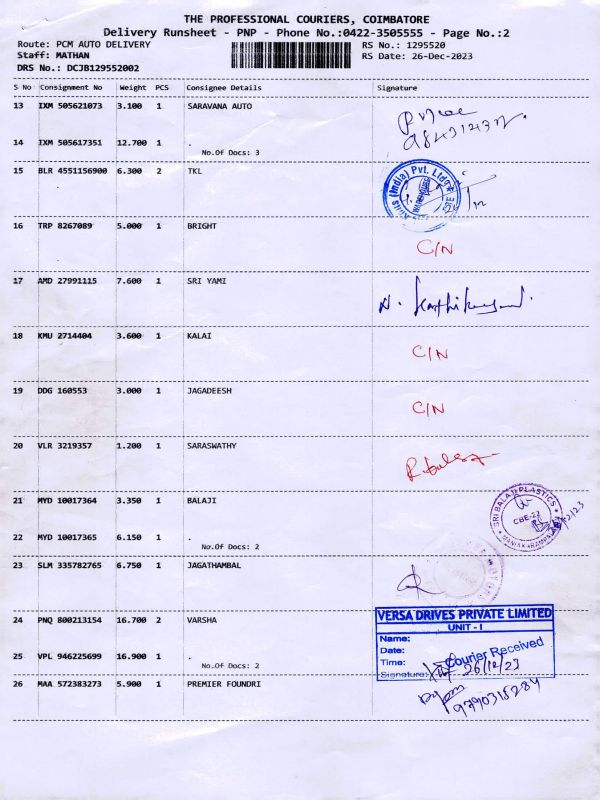 THE PROFESSIONAL COURIERS, COIMBATORE
Delivery Runsheet - PNP - Phone No.:0422-3505555 - Page No.:2
Route: PCM AUTO DELIVERY RS No.: 1295520
Staff: MATHAN RS Date: 26-Dec-2023
DRS No.: DCJB129552002
S No Consignment No Weight PCS Consignee Details Signature
13 IXM 505621073 3.100 1 SARAVANA AUTO
14 IXM 505617351 12.700 1 .
No.Of Docs: 3
15 BLR 4551156900 6.300 2 TKL
(India) Pvt. Ltd
16 TRP 8267089 5.000 1 BRIGHT
C/N
17 AMD 27991115 7.600 1 SRI YAMI
18 KMU 2714404 3.600 1 KALAI
C/N
19 DDG 160553 3.000 1 JAGADEESH
C/N
20 VLR 3219357 1.200 1 SARASWATHY
21 MYD 10017364 3.350 1 BALAJI
SRI BALAJI PLASTICS
CBE-27
22 MYD 10017365 6.150 1 .
No.Of Docs: 2
23 SLM 335782765 6.750 1 JAGATHAMBAL
24 PNQ 800213154 16.700 2 VARSHA
VERSA DRIVES PRIVATE LIMITED
UNIT - I
Name:
Date:
Courier Received
Time:
26/12/23
Signature:
25 VPL 946225699 16.900 1 .
No.Of Docs: 2
26 MAA 572383273 5.900 1 PREMIER FOUNDRI
9790315284